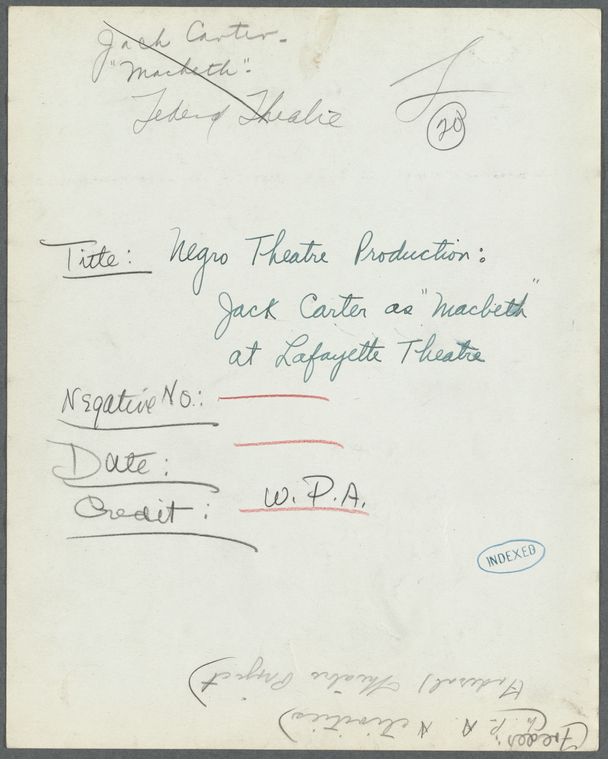 Jack Carter.
"Macbeth".
Federal Theatre
20
Title: Negro Theatre Production:
Jack Carter as "Macbeth"
at Lafayette Theatre
Negative No.:
Date:
Credit: W.P.A.
INDEXED
Theatre Project)